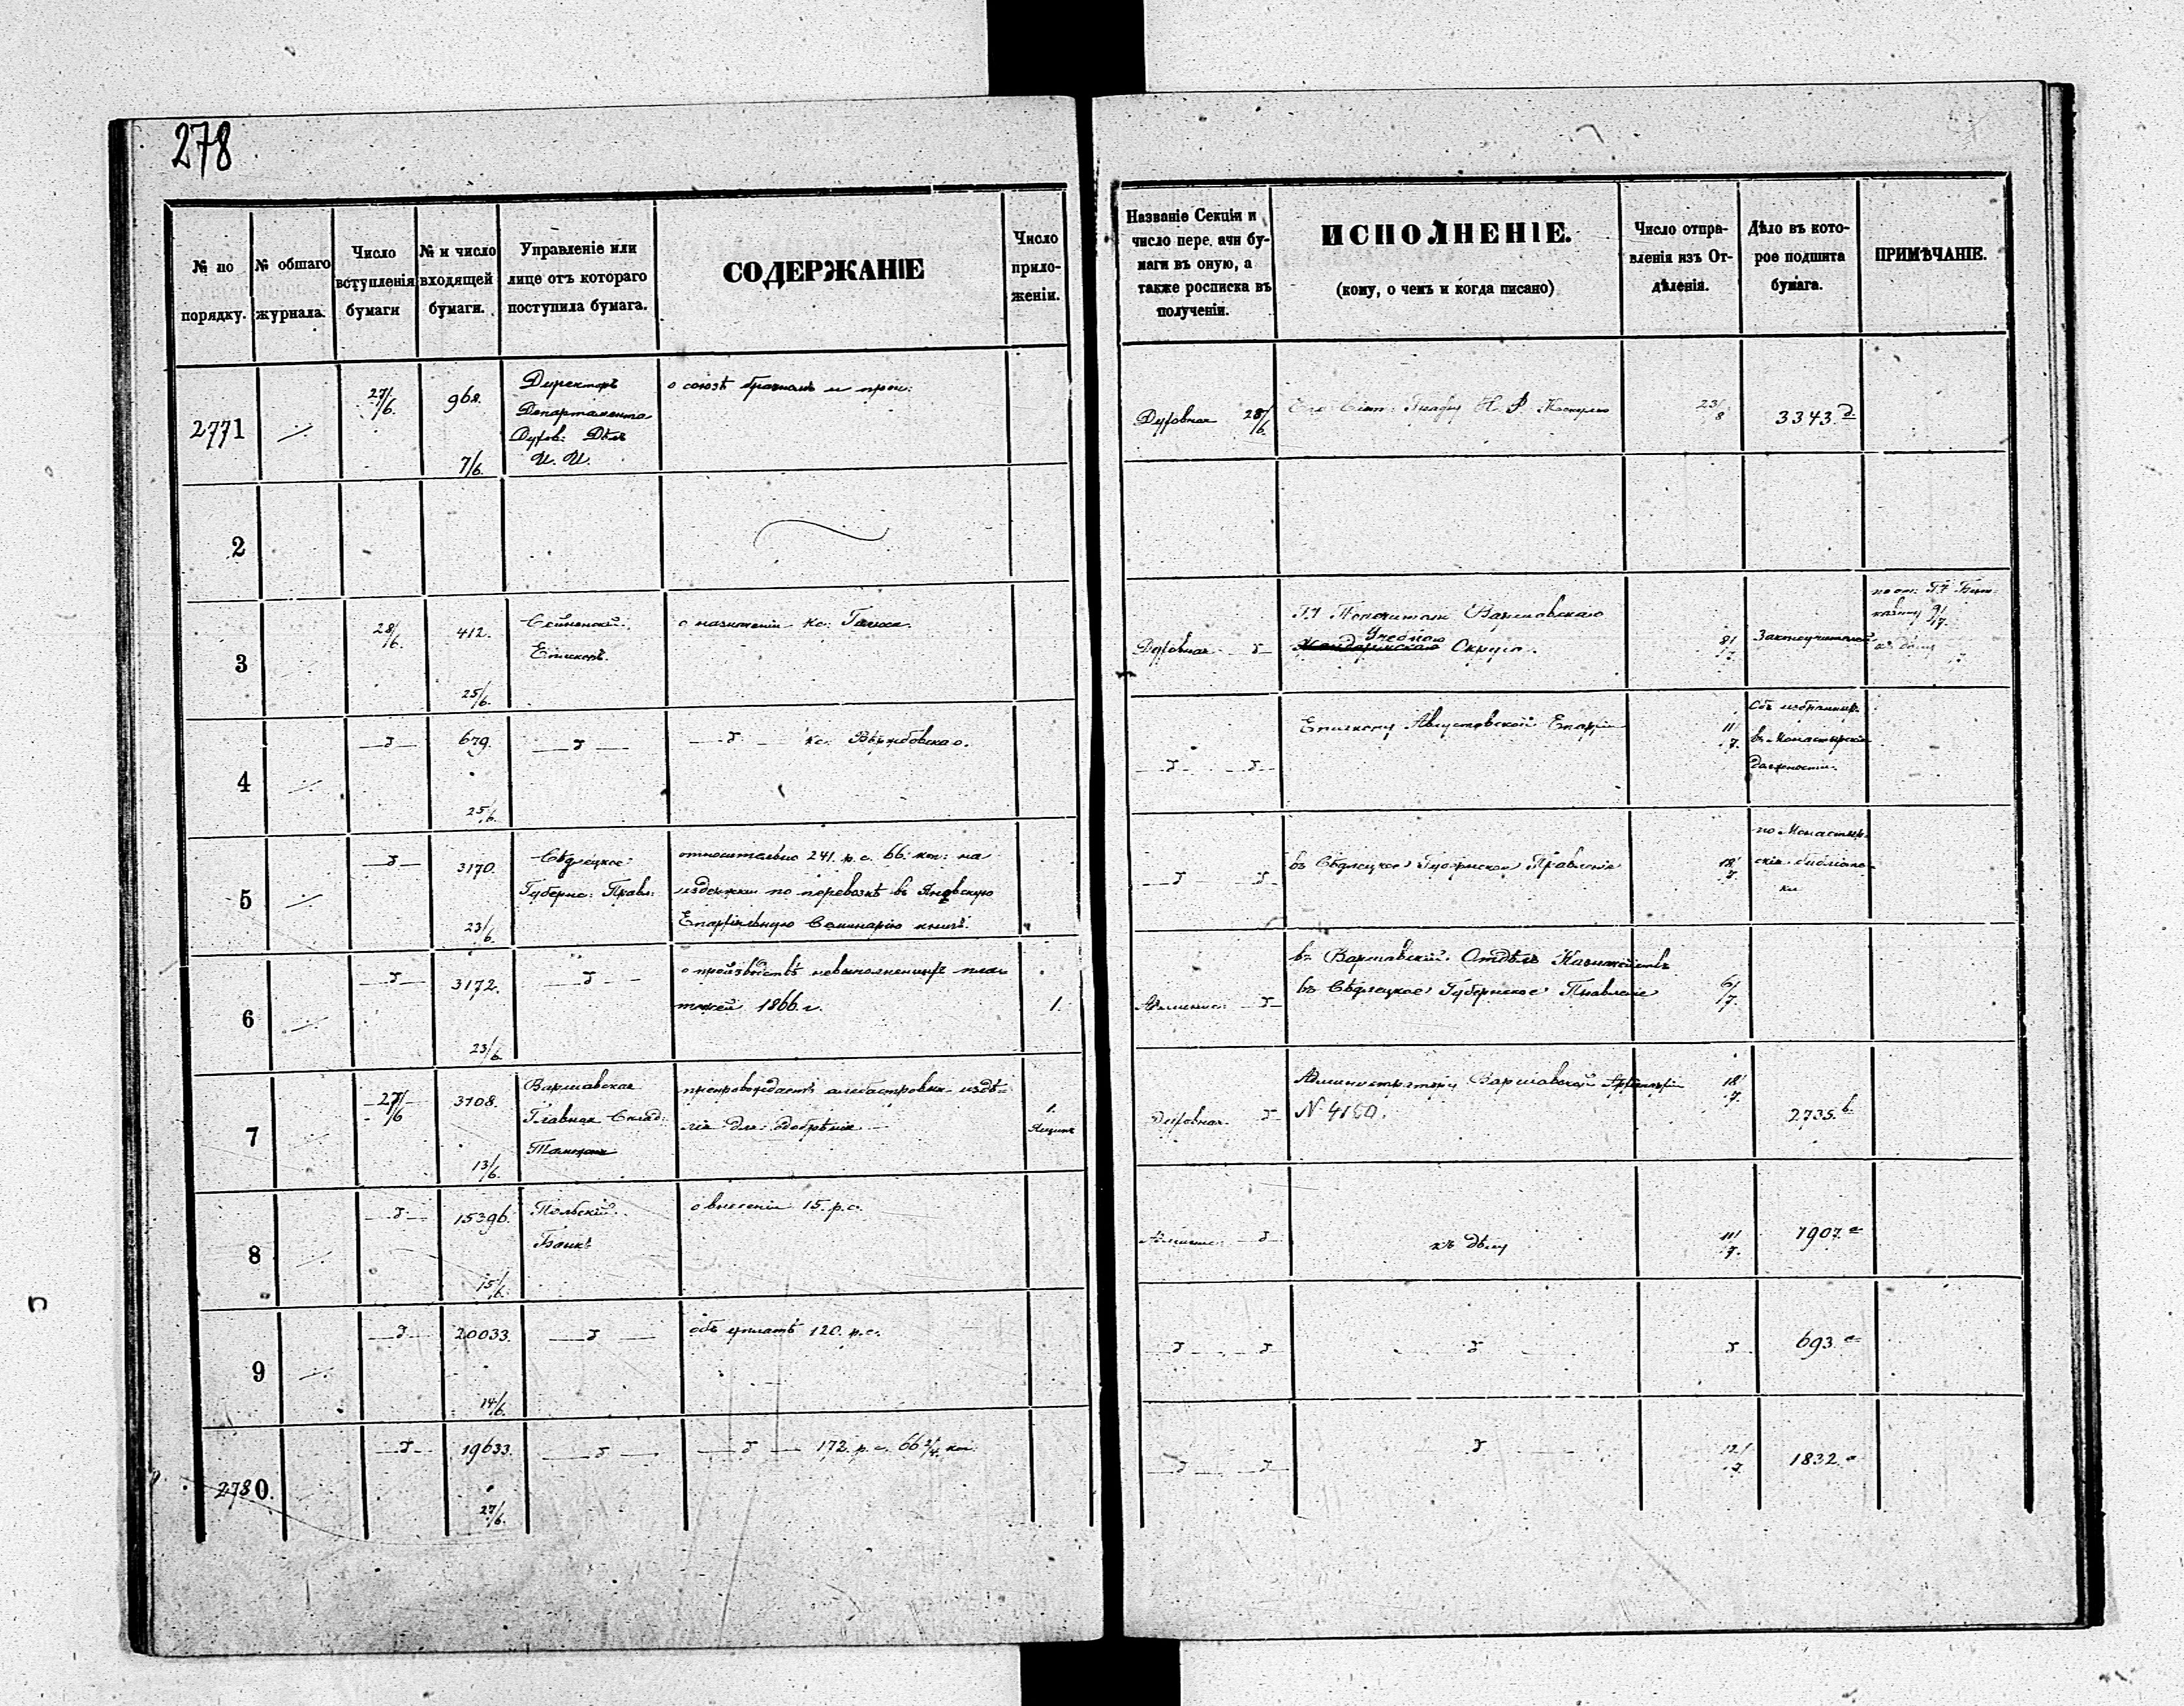 278
№ по порядку.
№ общаго журнала.
Число вступленія бумаги
№ и число входящей бумаги.
Управленіе или лице отъ котораго поступила бумага.
СОДЕРЖАНІЕ
Число приложеніи.
Названіе Секціи и число пере ачи бумаги въ оную, а также росписка въ полученіи.
ИСПОЛНЕНІЕ.
(кому, о чемъ и когда писано)
Число отправленія изъ Отдѣленія.
Дѣло въ которое подшита бумага.
ПРИМѢЧАНІЕ.
2771
27/6.
968.
7/6.
Директоръ
Департамента
Духов: Дѣлъ
И. И.
о союзѣ и проч:
Духовная 28/6
23/8
3343. д
2
3
28/6.
412.
25/6.
Сейненскій
Епископъ.
о назначеніи кс:
Духовная
Варшавскаго
Учебнаго
Округа.
8/7.
4
679.
25/6.
кс. Вержбовскаго.
Епископу Августовской Епархіи
11/7.
въ Монастырскія
должности.
5
3170.
23/6.
Сѣдлецкое
Губернс: Правл:
относительно 241. р. с. 66. коп: на
издержки по перевозкѣ въ Яновскую
Епархіальную Семинарію книгъ.
въ Сѣдлецкое Губернское Правленіе
18/7.
по Монастыр-
скія библіоте-
ки
6
3172.
23/6.
о производствѣ невыполненныхъ пла-
тежей 1866. г.
1.
въ Варшавскій Отдѣлъ Казначейства
въ Сѣдлецкое Губернское Правленіе
6/7.
7
27/6
3108.
13/6.
Варшавская
Главная Склад:
Таможня
препровождаетъ алебастровыя издѣ-
лія для одобрѣнія
1.
Ящикъ
Духовная
Администратору Варшавской Архіепархіи
N 4160.
18/7.
2735. b
8
15396.
15/6.
Польскій
Банкъ
о внесеніи 15. р. с.
къ дѣлу
11/7.
1907. а
9
20033.
14/6.
объ уплатѣ 120. р. с.
693. а
2780.
19633.
27/6.
172. р. с. 66 3/4. коп.
12/7.
1832. а